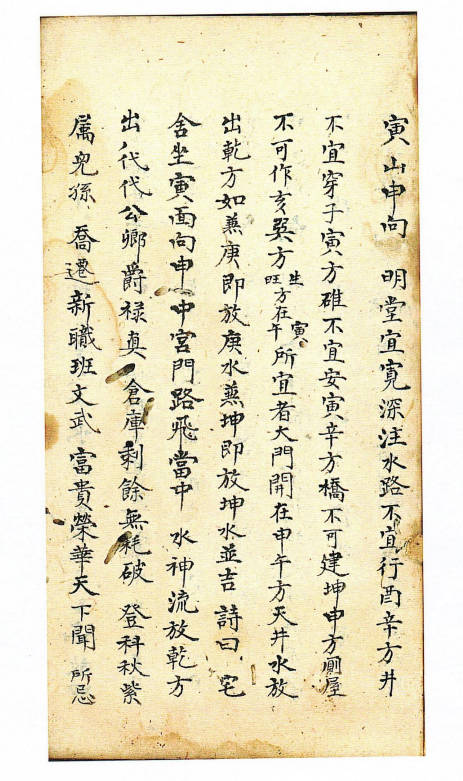 寅山申向 明堂宜寬深注水路不宜行酉辛方井
不宜穿子寅方碓不宜安寅辛方橋不可建坤申方厠屋
不可作亥癸方生旺方在寅午所宜者大門開在申午方天井水放
出乾方如兼庚即放庚水兼坤即放坤水並吉 詩曰 宅
舍坐寅面向申 中宮門路飛當中 水神流放乾方
出 代代公卿爵禄真 倉庫剩餘無耗破 登科秋紫
属兒孫 喬遷新職班文武 富貴榮華天下聞 所忌